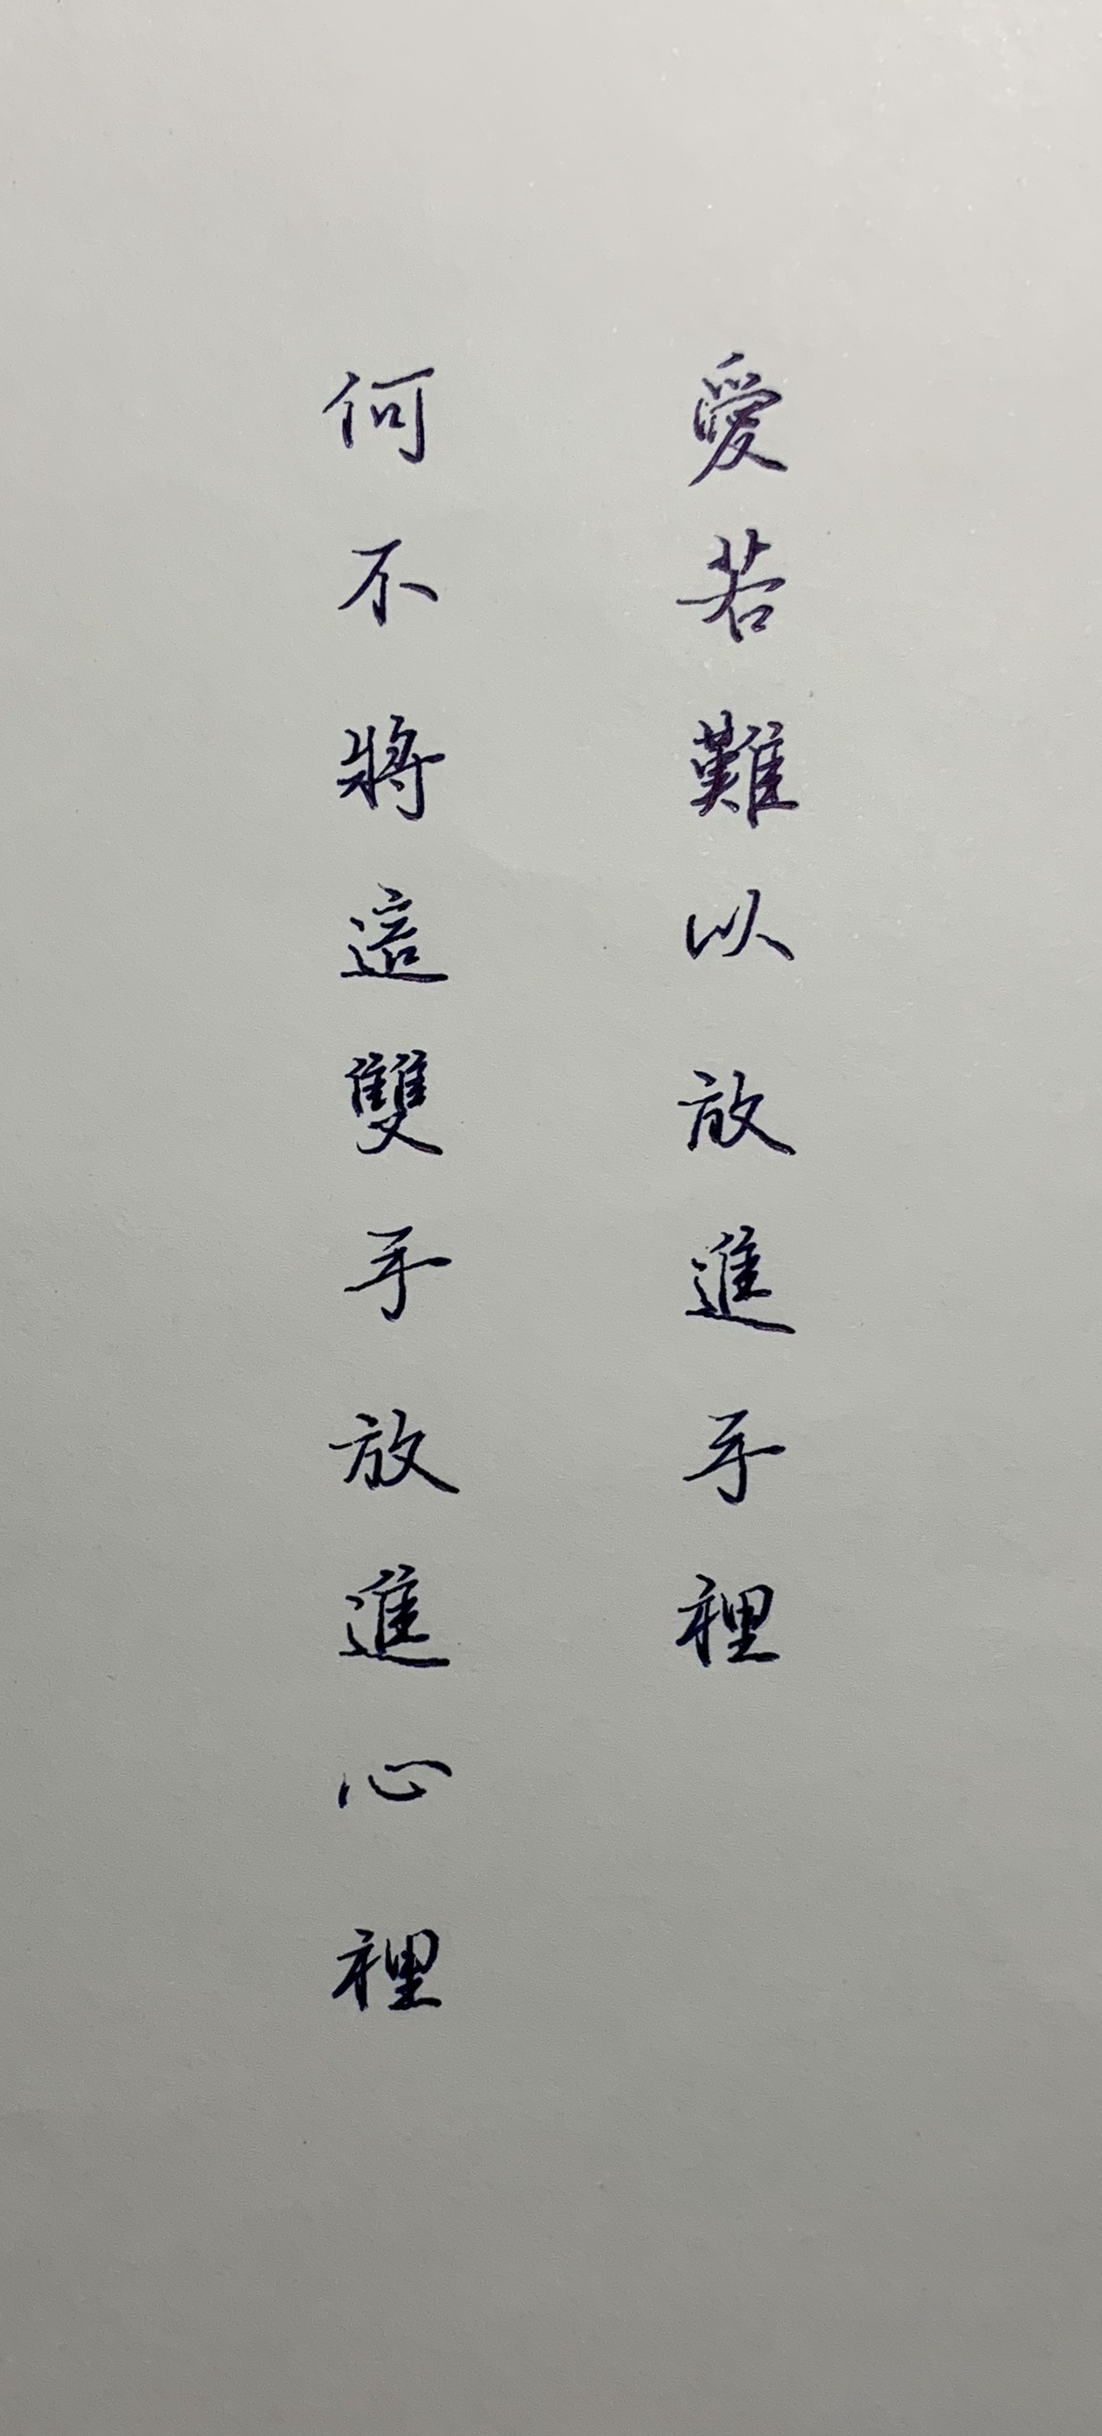 愛若難以放進手裡
何不將這雙手放進心裡